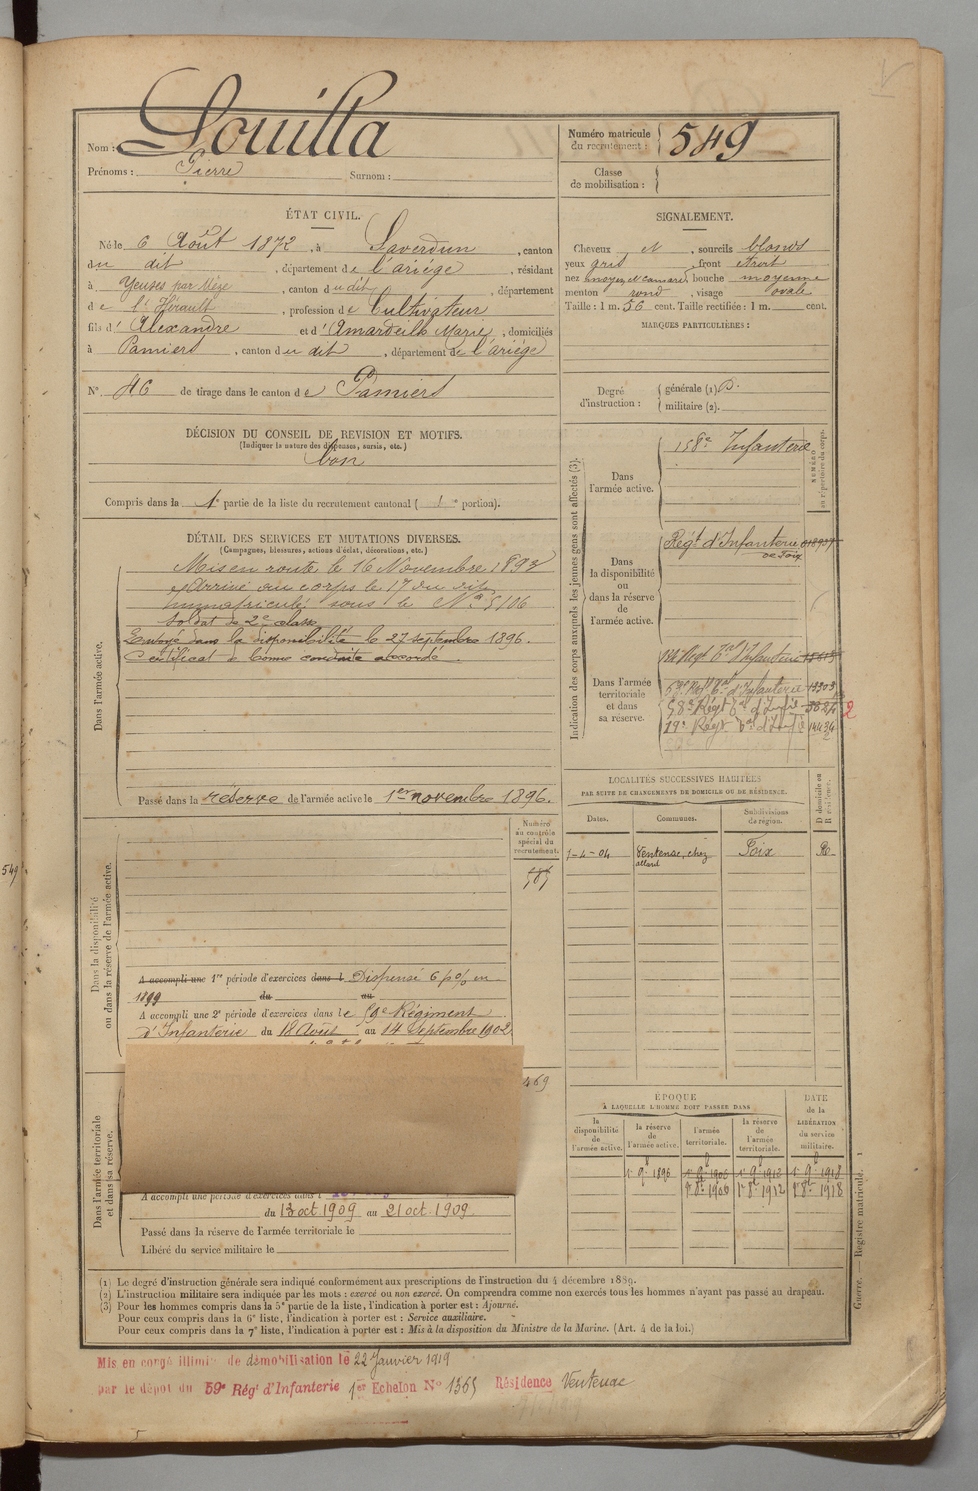 Nom : Louilla
Prénoms : Pierre Surnom :
Numéro matricule du recrutement : 549
Classe de mobilisation :
ÉTAT CIVIL.
Né le 6 Août 1872, à Saverdun, canton
du dit, département de l'ariège, résidant
à Yeuses par Mèze, canton du dit, département
de l'Hérault, profession de Cultivateur
fils d'Alexandre et d'Amardeilh Marie, domiciliés
à Pamiers, canton du dit, département de l'ariège
N° 46 de tirage dans le canton de Pamiers
SIGNALEMENT.
Cheveux N, sourcils blonds
yeux gris, front étroit
nez moyen et camard, bouche moyenne
menton rond, visage ovale
Taille : 1 m. 56 cent. Taille rectifiée : 1 m. cent.
MARQUES PARTICULIÈRES :
Degré d'instruction : générale (1)
militaire (2).
DÉCISION DU CONSEIL DE REVISION ET MOTIFS.
(Indiquer la nature des dispenses, sursis, etc.)
bon
Compris dans la 1e partie de la liste du recrutement cantonal ( e portion).
DÉTAIL DES SERVICES ET MUTATIONS DIVERSES.
(Campagnes, blessures, actions d'éclat, décorations, etc.)
Dans l'armée active.
Mis en route le 16 Novembre 1893
Arrivé au corps le 17 du dit
immatriculé sous le N° 5106
soldat de 2e classe
Envoyé dans la disponibilité le 27 septembre 1896.
Certificat de bonne conduite accordé.
Passé dans la réserve de l'armée active le 1er novembre 1896.
Indication des corps auxquels les jeunes gens sont affectés (3).
NUMÉRO au répertoire du corps.
Dans l'armée active.
158e Infanterie
Dans la disponibilité ou dans la réserve de l'armée active.
Régt d'Infanterie
de Foix
Dans l'armée territoriale et dans sa réserve.
Régt Tal d'Infanterie
Régt Tal d'Infanterie 13303
58e Régt Tal d'Infie 3824 2
19e Régt Tal d'Infie 14434
LOCALITÉS SUCCESSIVES HABITÉES
PAR SUITE DE CHANGEMENTS DE DOMICILE OU DE RÉSIDENCE.
Dates. Communes. Subdivisions de région. D domicile ou R résidence.
1-4-04 Ventenac, chez allard Foix R
Numéro au contrôle spécial du recrutement.
585
549
Dans la disponibilité ou dans la réserve de l'armée active.
A accompli une 1re période d'exercices dans l Dispensé 6 p% en
1899 du au
A accompli une 2e période d'exercices dans le 59e Régiment
d'Infanterie du 18 Août au 14 Septembre 1902
469
Dans l'armée territoriale et dans sa réserve.
A accompli une période d'exercices dans l
du 13 oct 1909 au 21 oct 1909
Passé dans la réserve de l'armée territoriale le
Libéré du service militaire le
ÉPOQUE
A LAQUELLE L'HOMME DOIT PASSER DANS
la disponibilité de l'armée active. la réserve de l'armée active. l'armée territoriale. la réserve de l'armée territoriale.
DATE de la LIBÉRATION du service militaire.
1r 9 1896 1r 9 1906 1r 9 1912 1r 9 1918
1r 8e 1906 1r 8e 1912 1r 8e 1918
Guerre. — Registre matricule. 1
(1) Le degré d'instruction générale sera indiqué conformément aux prescriptions de l'instruction du 4 décembre 1889.
(2) L'instruction militaire sera indiquée par les mots : exercé ou non exercé. On comprendra comme non exercés tous les hommes n'ayant pas passé au drapeau.
(3) Pour les hommes compris dans la 5e partie de la liste, l'indication à porter est : Ajourné.
Pour ceux compris dans la 6e liste, l'indication à porter est : Service auxiliaire.
Pour ceux compris dans la 7e liste, l'indication à porter est : Mis à la disposition du Ministre de la Marine. (Art. 4 de la loi.)
Mis en congé illimité de démobilisation le 22 Janvier 1919
par le dépot du 59e Régt d'Infanterie 1er Echelon N° 1365 Résidence Ventenac